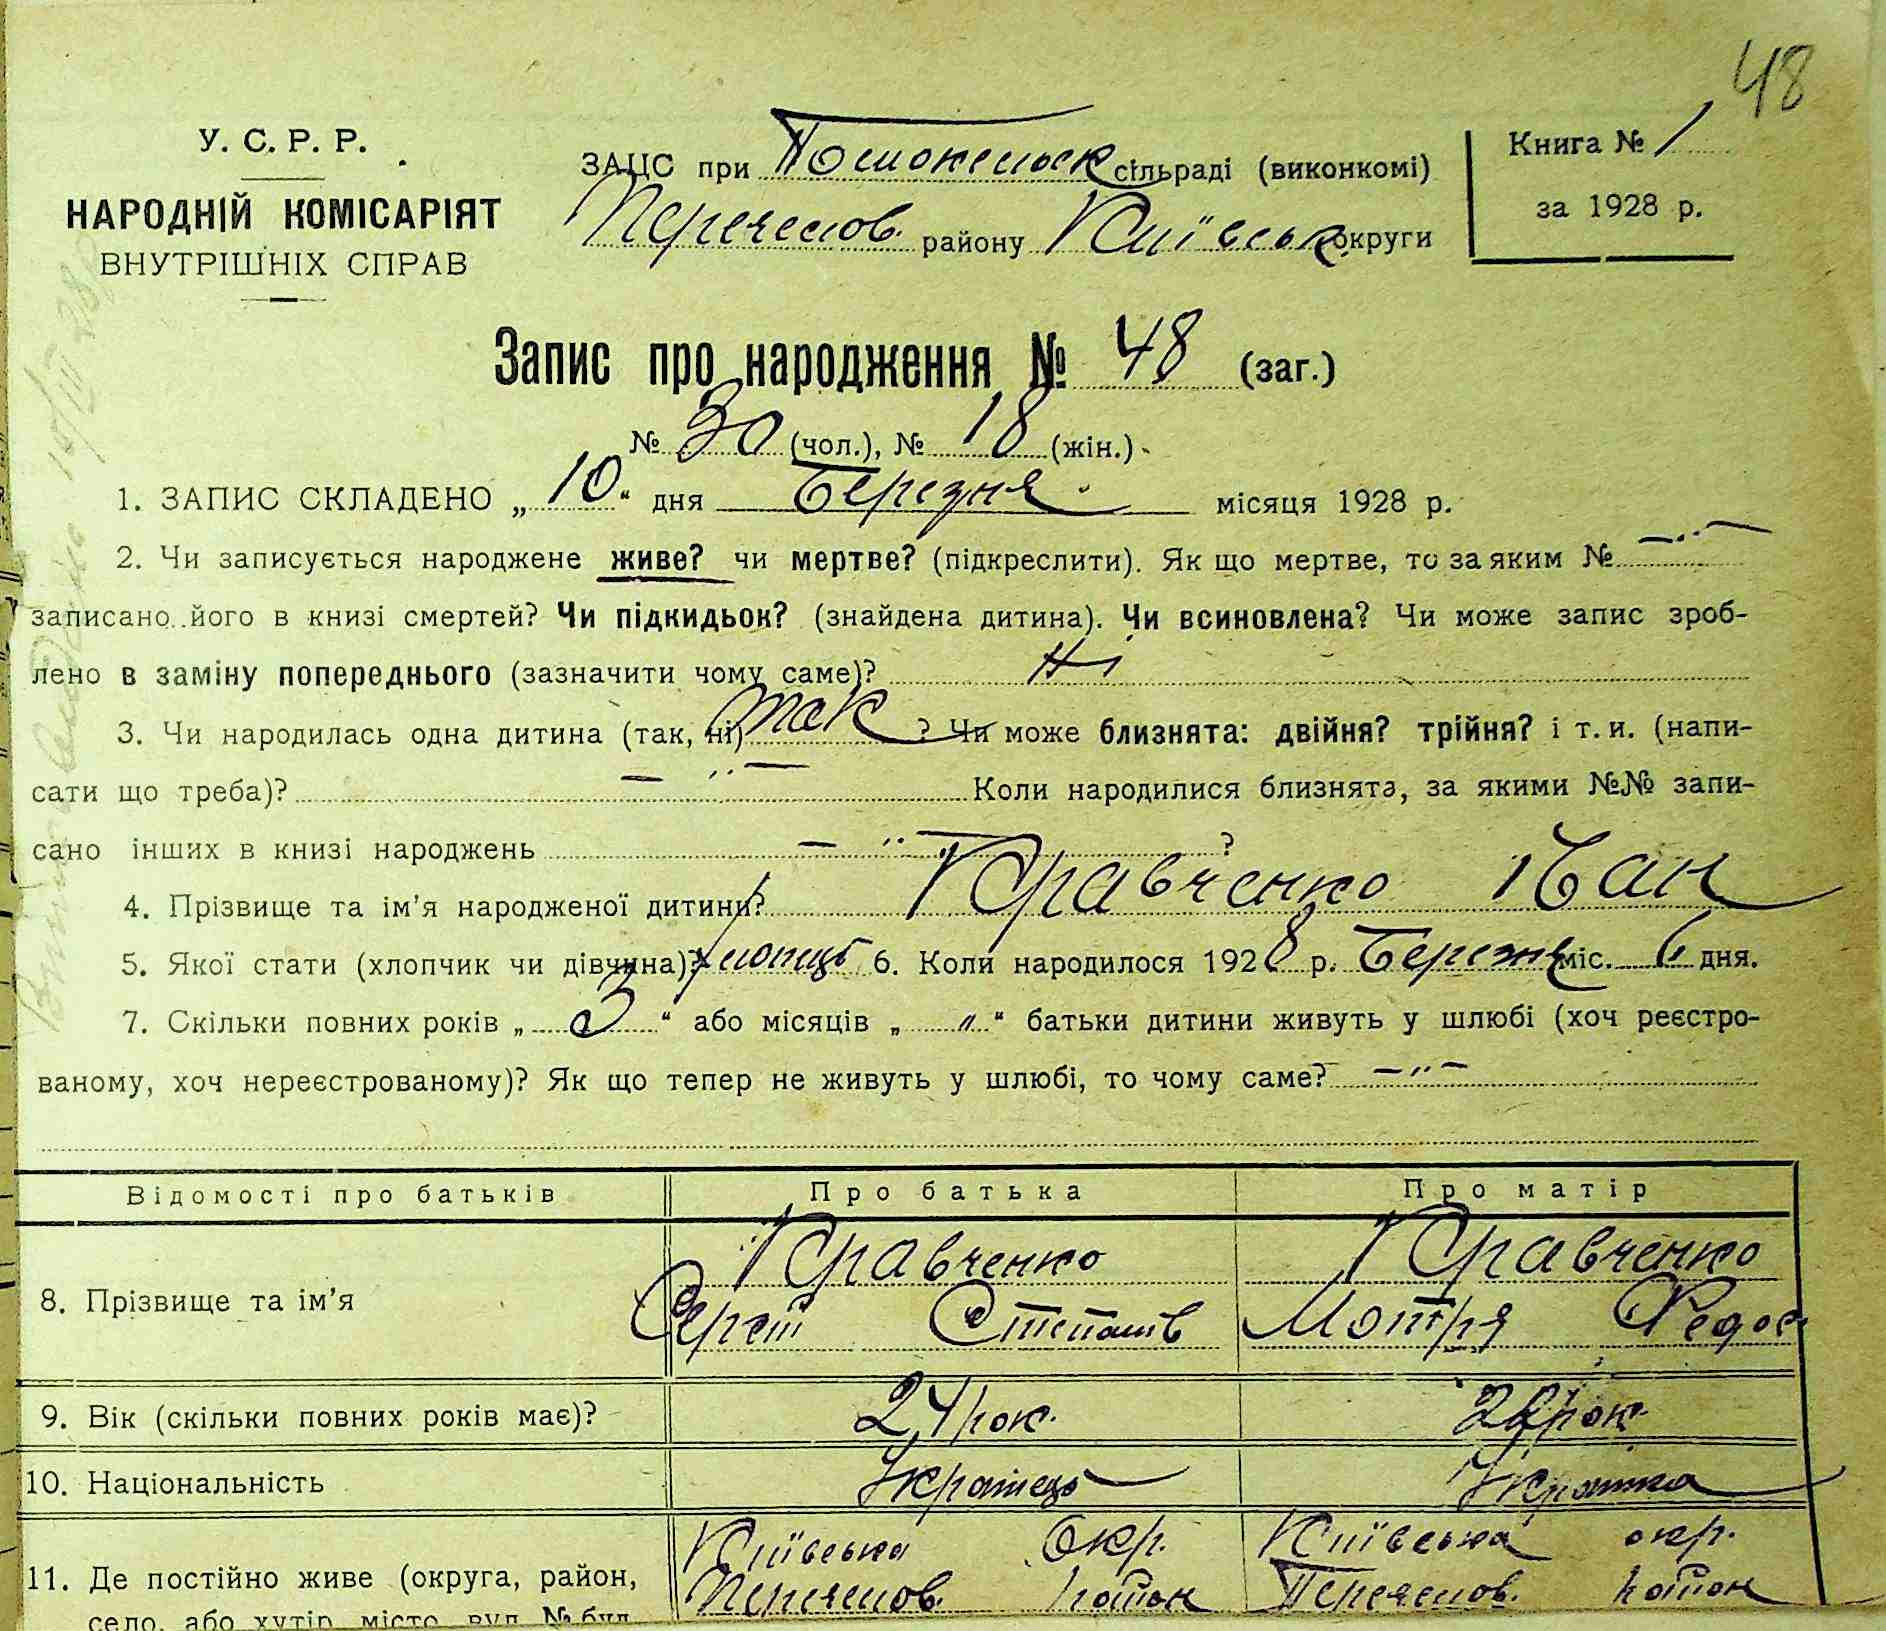 48
У. С. Р. Р.
НАРОДНІЙ КОМІСАРІЯТ
ВНУТРІШНІХ СПРАВ
ЗАЦС при сільраді (виконкомі)
району Київськ округи
Книга № 1
за 1928 р.
Запис про народження № 48 (заг.)
№ 30 (чол.), № 18 (жін.)
1. ЗАПИС СКЛАДЕНО „10“ дня Березня місяця 1928 р.
2. Чи записується народжене живе? чи мертве? (підкреслити). Як що мертве, то за яким № —··—
записано його в книзі смертей? Чи підкидьок? (знайдена дитина). Чи всиновлена? Чи може запис зроб-
лено в заміну попереднього (зазначити чому саме)? Ні
3. Чи народилась одна дитина (так, ні) так ? Чи може близнята: двійня? трійня? і т. и. (напи-
сати що треба)? —··— Коли народилися близнята, за якими №№ запи-
сано інших в книзі народжень —··— ?
4. Прізвище та ім’я народженої дитини? Кравченко Іван
5. Якої стати (хлопчик чи дівчина)? хлопець 6. Коли народилося 1928 р. Березня міс. 6 дня.
7. Скільки повних років „3“ або місяців „〃“ батьки дитини живуть у шлюбі (хоч реєстро-
ваному, хоч нереєстрованому)? Як що тепер не живуть у шлюбі, то чому саме? —··—
Відомості про батьків Про батька Про матір
8. Прізвище та ім’я Кравченко Кравченко
Сергій Степанів Мотря Федос
9. Вік (скільки повних років має)? 24 рок. 22 рок.
10. Національність Українець Українка
Київська Окр. Київська окр.
11. Де постійно живе (округа, район, район район
село, або хутір, місто, вул. № буд.